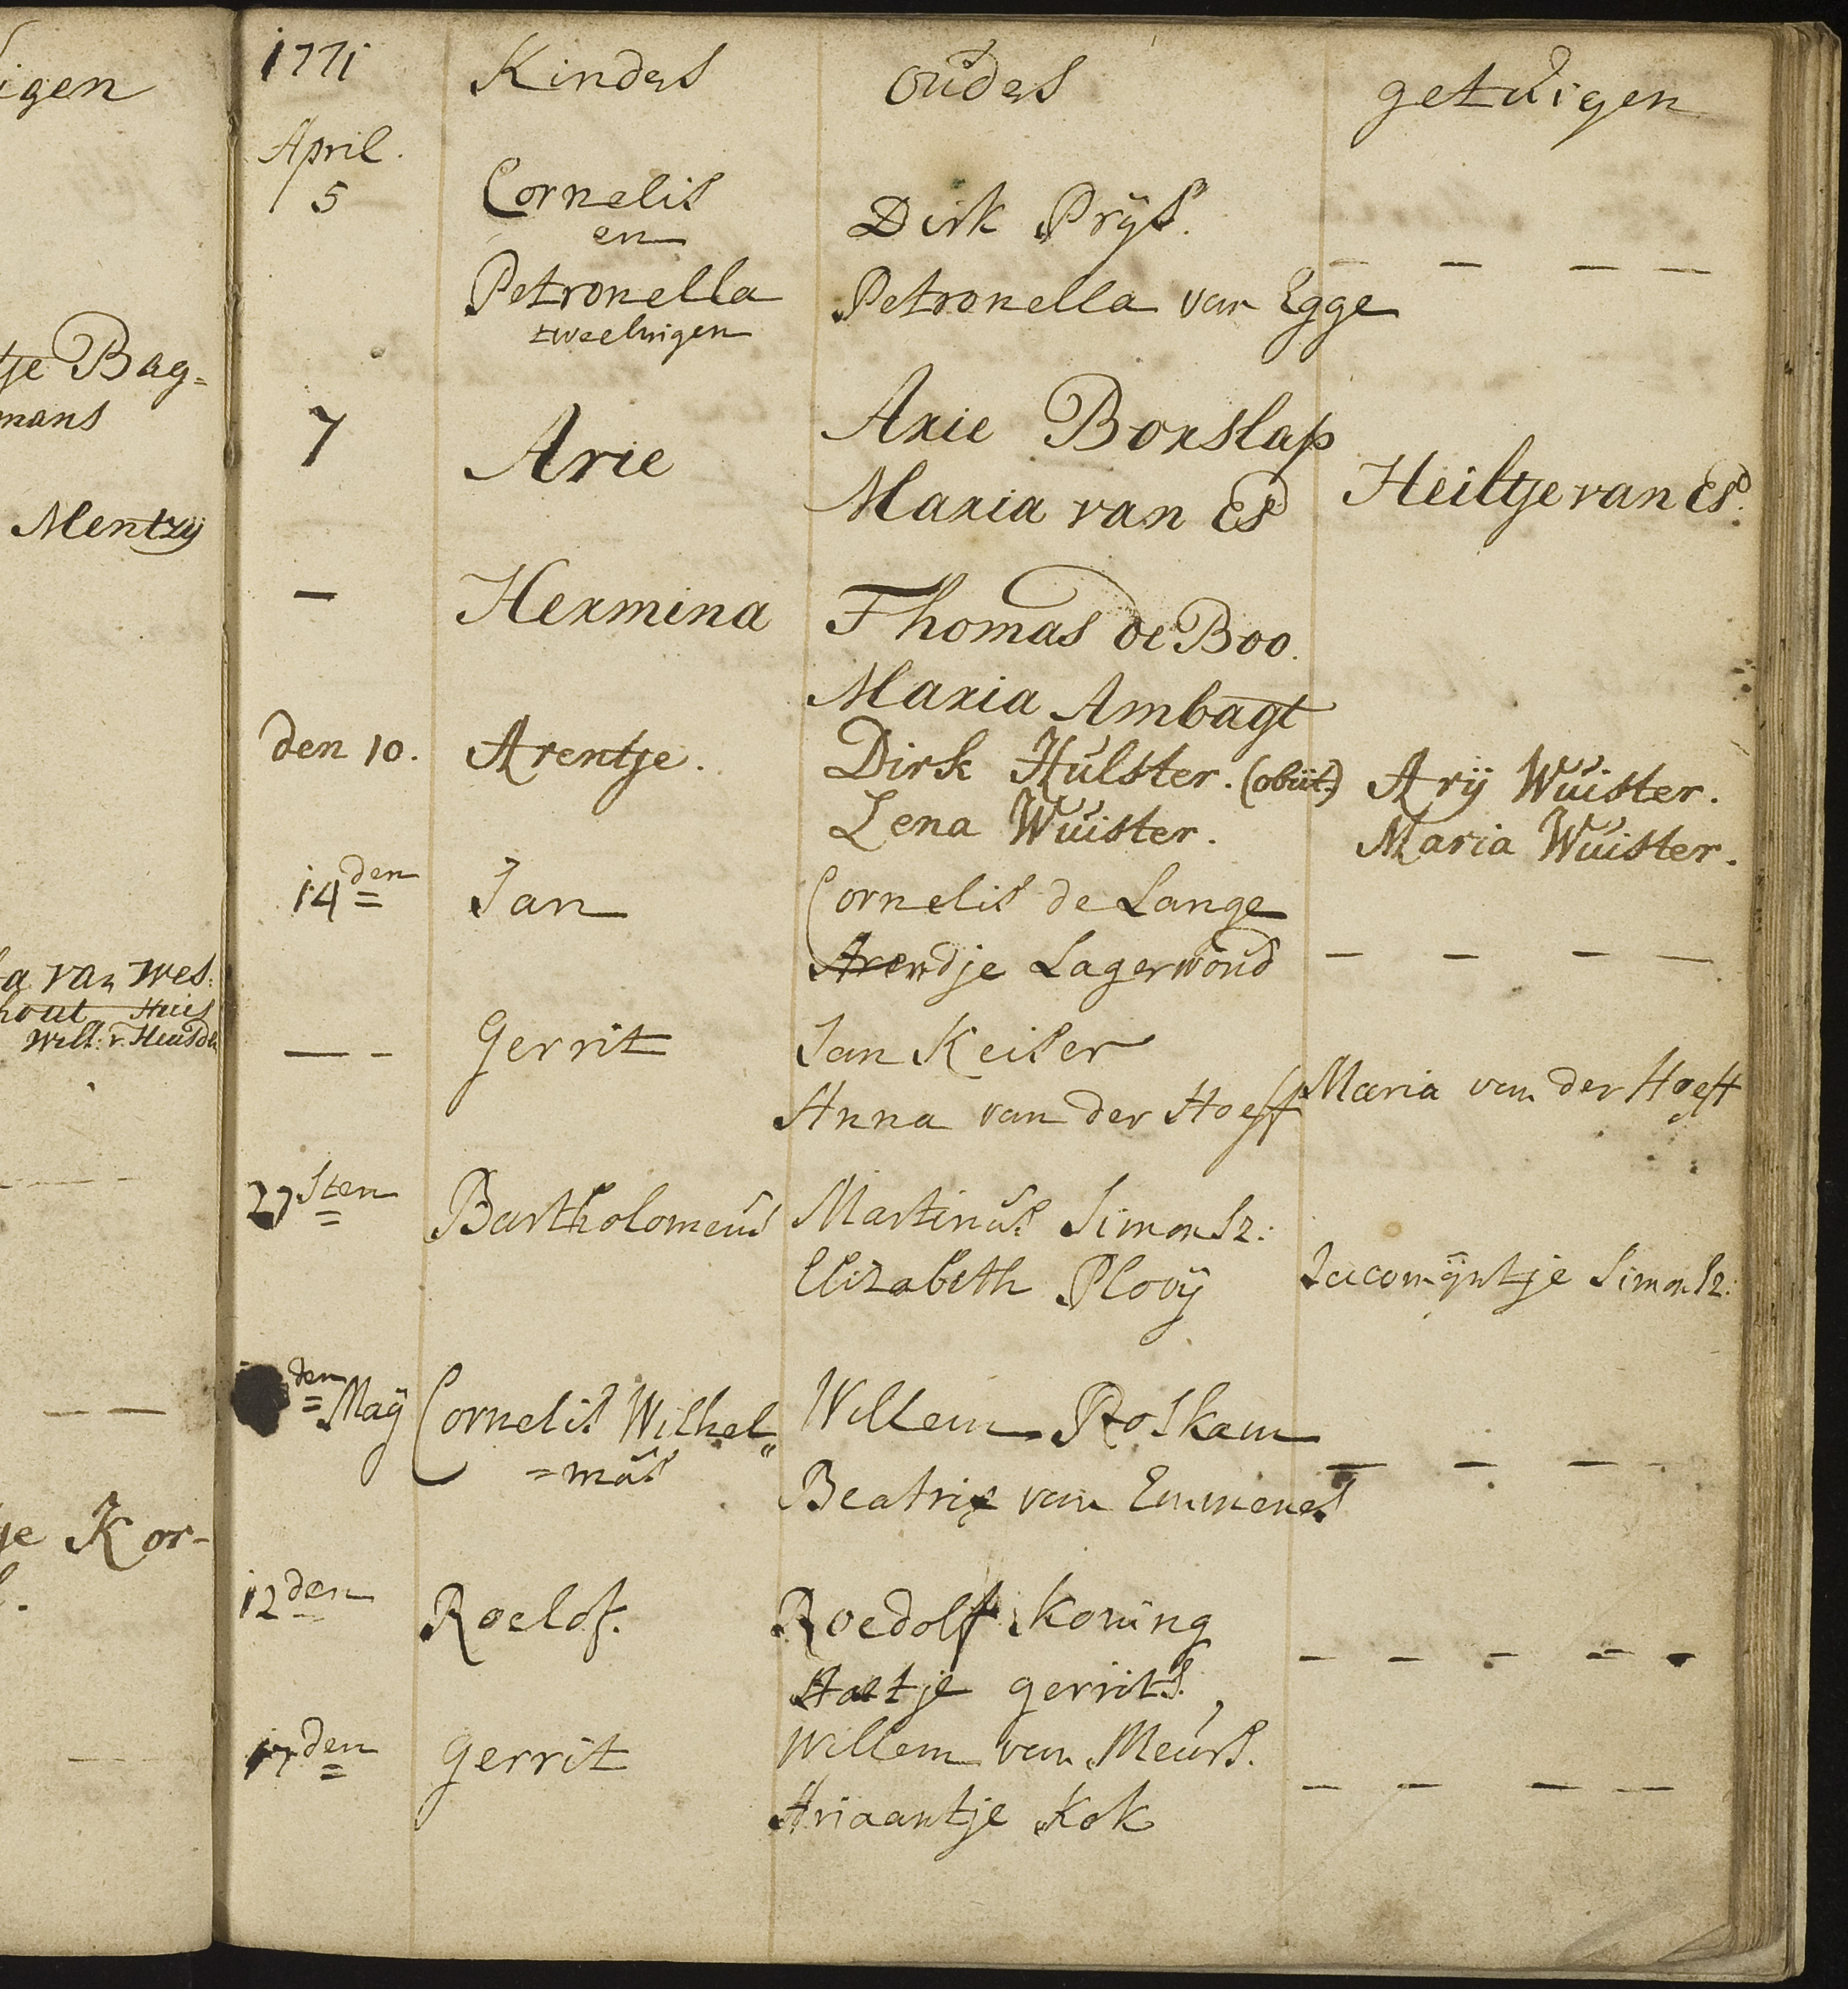 igen
tje Bag=
mans
Mentzij
ta van Wes:
hout Huis
Will: v. Heusde
je Kor-
1771 Kinders ouders getuigen
April.
5 Cornelis Dirk Prijs.
en
Petronella Petronella van Egge — — — —
tweelingen
7 Arie Arie Borslap
Maria van Es Heiltje van Es.
— Hermina Thomas de Boo.
Maria Ambagt
den 10. Arentje. Dirk Hulster. (obiit.) Arij Wuister.
Lena Wuister. Maria Wuister.
14den Jan Cornelis de Lange
Arendje Lagerwoud — — — —
— - Gerrit Jan Keiser
Anna van der Hoeff Maria van der Hoeff
27sten Bartholomeus Martinus Simonsz:
Elizabeth Plooij Jacomijntje Simonsz:
den Maij Cornelis Wilhel„ Willem Roskam
=mus Beatrix van Emmenes — — — —
12den Roelof. Roedolf Koning
Aaltje gerrits. — — — — —
17den Gerrit Willem van Meurs.
Ariaantje Kok — — — —